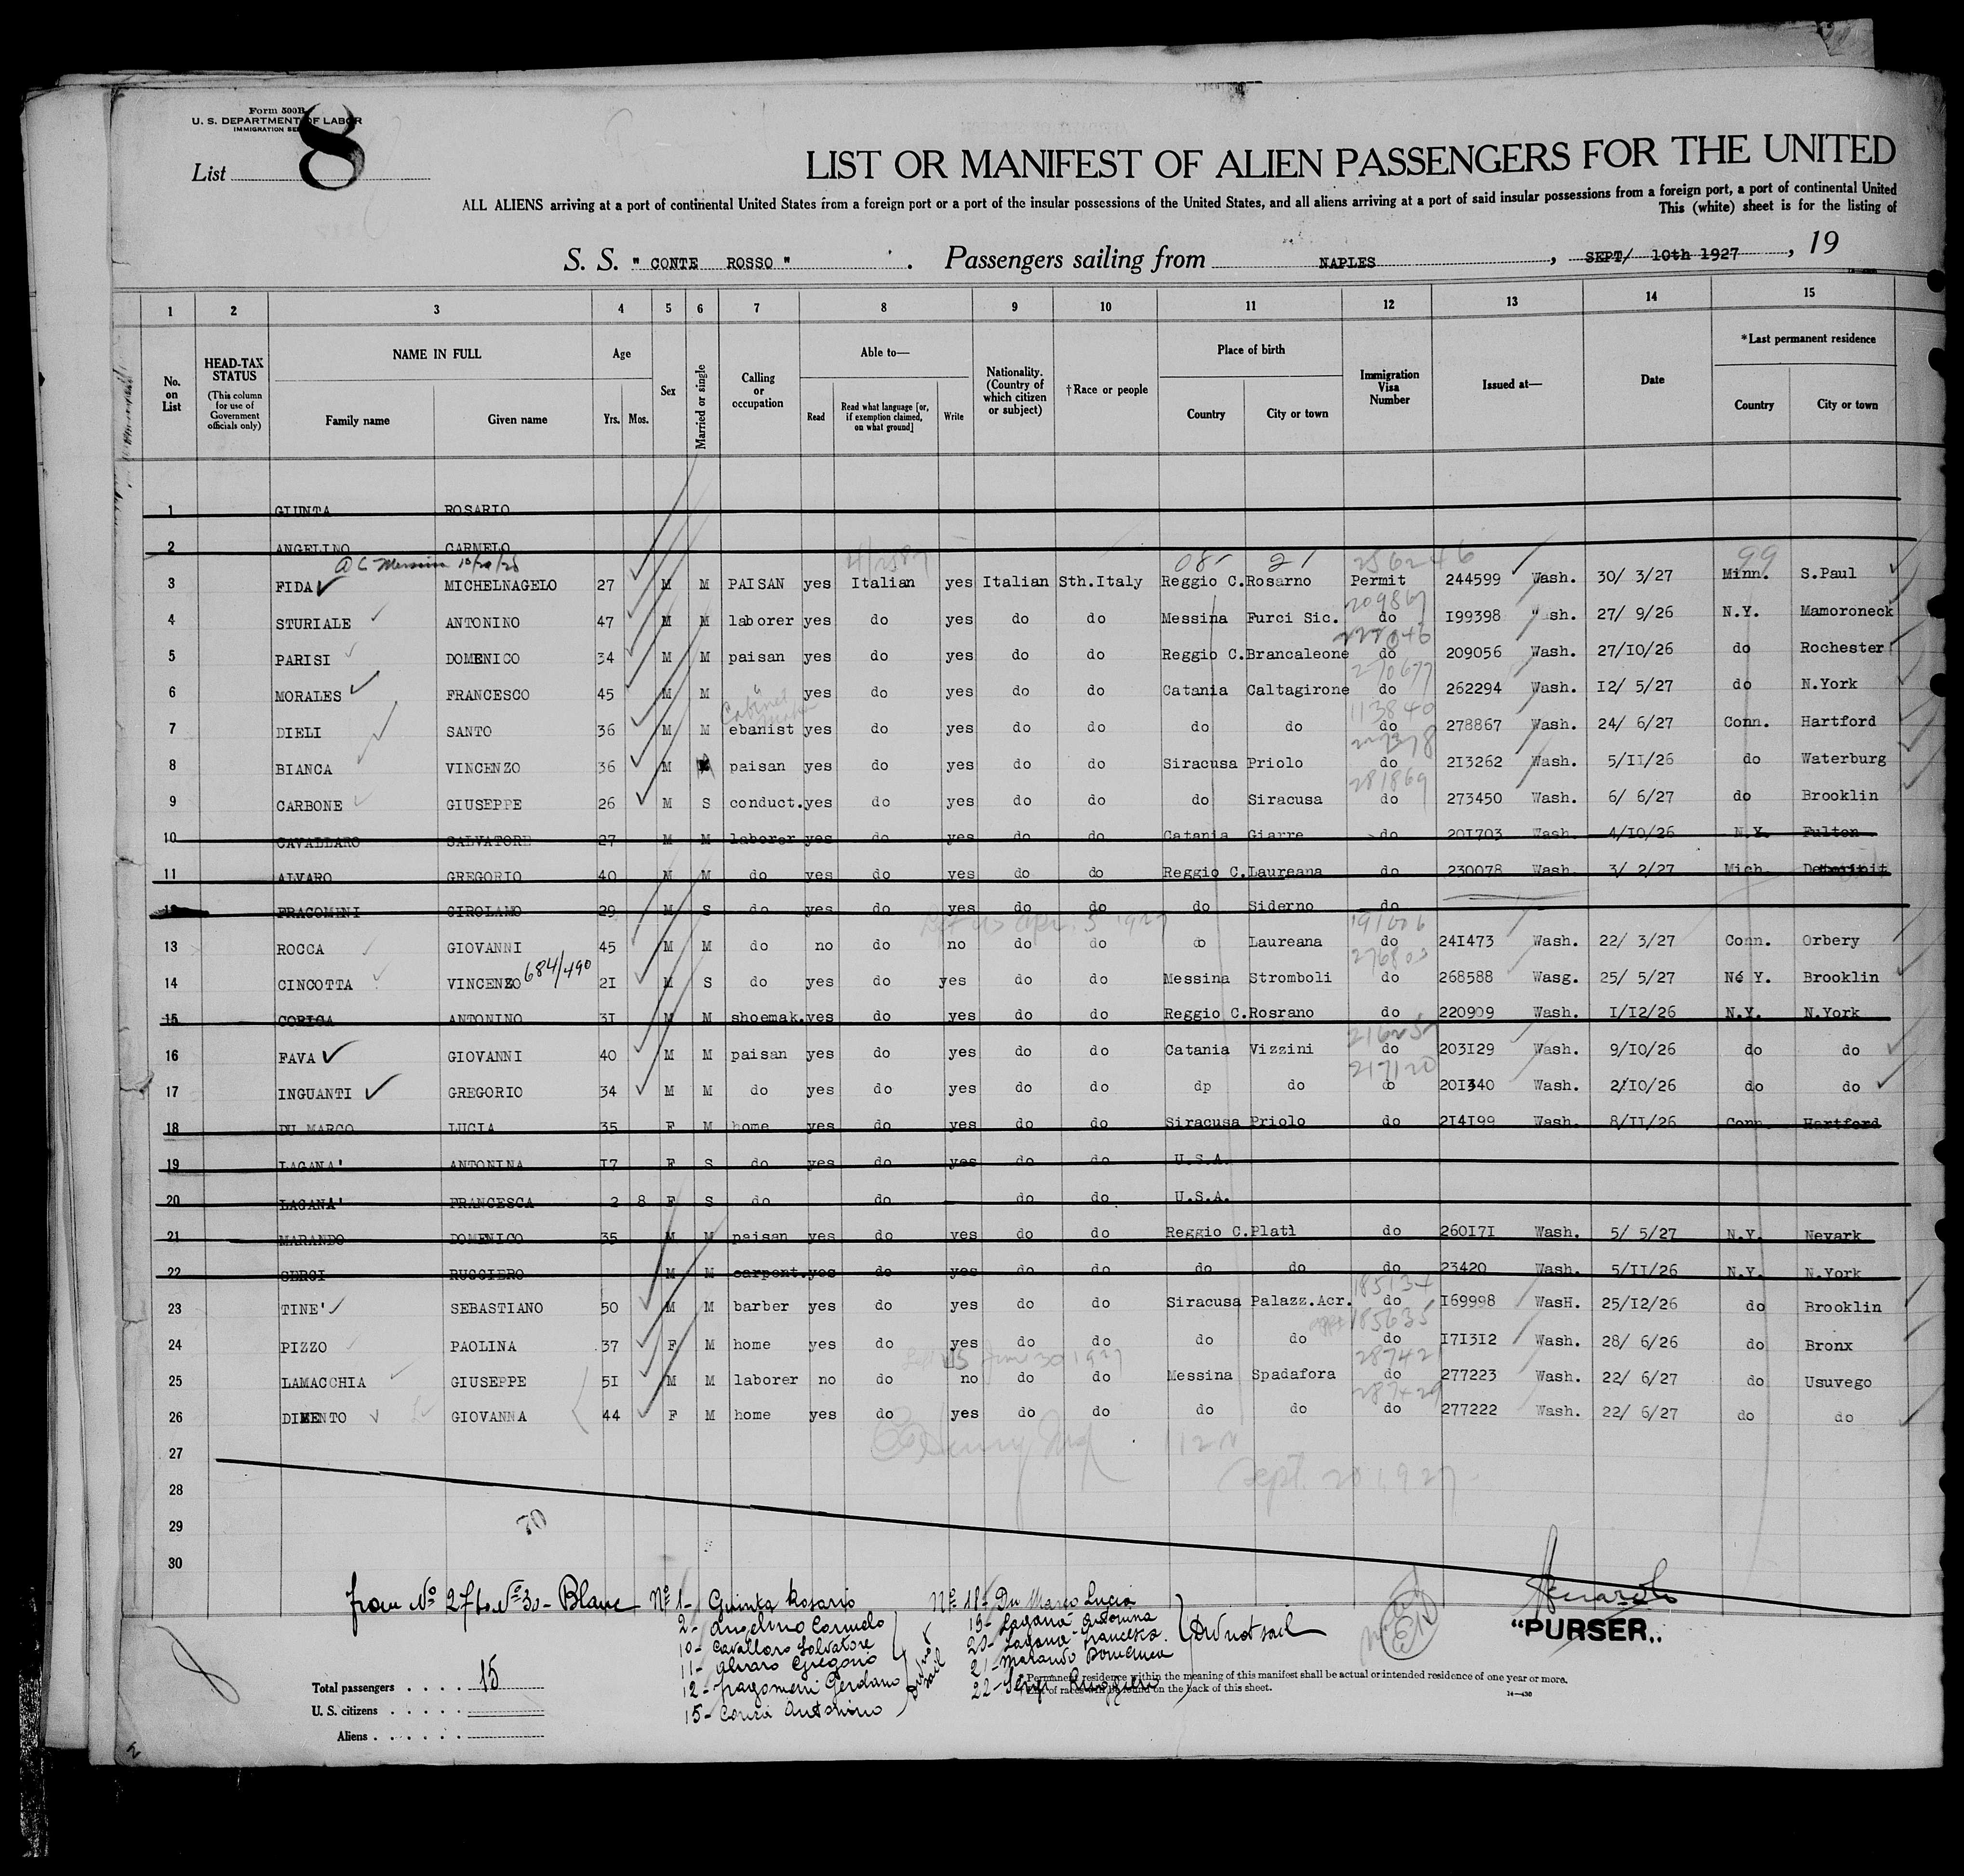 Form 500B
U. S. DEPARTMENT OF LABOR
IMMIGRATION SE
List 8
LIST OR MANIFEST OF ALIEN PASSENGERS FOR THE UNITED
ALL ALIENS arriving at a port of continental United States from a foreign port or a port of the insular possessions of the United States, and all aliens arriving at a port of said insular possessions from a foreign port, a port of continental United
This (white) sheet is for the listing of
S. S. " CONTE ROSSO " . Passengers sailing from NAPLES , SEPT/ 10th 1927 , 19
1 2 3 4 5 6 7 8 9 10 11 12 13 14 15
No. on List
HEAD-TAX STATUS
(This column for use of Government officials only)
NAME IN FULL
Family name Given name
Age
Yrs. Mos.
Sex
Married or single
Calling or occupation
Able to—
Read
Read what language [or, if exemption claimed, on what ground]
Write
Nationality. (Country of which citizen or subject)
†Race or people
Place of birth
Country City or town
Immigration Visa Number
Issued at—
Date
*Last permanent residence
Country City or town
1 GIUNTA ROSARIO
2 ANGELINO CARMELO
3 FIDA MICHELNAGELO 27 M M PAISAN yes Italian yes Italian Sth.Italy Reggio C. Rosarno Permit 244599 Wash. 30/ 3/27 Minn. S.Paul
4 STURIALE ANTONINO 47 M M laborer yes do yes do do Messina Furci Sic. do I99398 Wash. 27/ 9/26 N.Y. Mamoroneck
5 PARISI DOMENICO 34 M M paisan yes do yes do do Reggio C. Brancaleone do 209056 Wash. 27/IO/26 do Rochester
6 MORALES FRANCESCO 45 M M " yes do yes do do Catania Caltagirone do 262294 Wash. I2/ 5/27 do N.York
Cabinet
7 DIELI SANTO 36 M M ebanist yes do yes do do do do do 278867 Wash. 24/ 6/27 Conn. Hartford
8 BIANCA VINCENZO 36 M M paisan yes do yes do do Siracusa Priolo do 2I3262 Wash. 5/II/26 do Waterburg
281869
9 CARBONE GIUSEPPE 26 M S conduct. yes do yes do do do Siracusa do 273450 Wash. 6/ 6/27 do Brooklin
10 CAVALLARO SALVATORE 27 M M laborer yes do yes do do Catania Giarre do 20I703 Wash. 4/IO/26 N.Y. Fulton
11 ALVARO GREGORIO 40 M M do yes do yes do do Reggio C. Laureana do 230078 Wash. 3/ 2/27 Mich.
12 FRAGOMENI GIROLAMO 29 M S do yes do yes do do do Siderno do
13 ROCCA GIOVANNI 45 M M do no do no do do do Laureana do 24I473 Wash. 22/ 3/27 Conn. Orbery
684/490
14 CINCOTTA VINCENZO 2I M S do yes do yes do do Messina Stromboli do 268588 Wasg. 25/ 5/27 Né Y. Brooklin
15 CORICA ANTONINO 3I M M shoemak. yes do yes do do Reggio C. Rosrano do 220909 Wash. I/I2/26 N.Y. N.York
16 FAVA GIOVANNI 40 M M paisan yes do yes do do Catania Vizzini do 203I29 Wash. 9/IO/26 do do
217120
17 INGUANTI GREGORIO 34 M M do yes do yes do do dp do do 20I340 Wash. 2/IO/26 do do
18 DU MARCO LUCIA 35 F M home yes do yes do do Siracusa Priolo do 2I4I99 Wash. 8/II/26 Conn. Hartford
19 LAGANA' ANTONINA I7 F S do yes do yes do do U.S.A.
20 LAGANA' FRANCESCA 2 8 F S do do do do U.S.A.
21 MARANDO DOMENICO 35 M M paisan yes do yes do do Reggio C. Platì do 260I7I Wash. 5/ 5/27 N.Y. Nevark
22 SERGI RUGGIERO M M carpent. yes do yes do do do do do 23420 Wash. 5/II/26 N.Y. N.York
185134
23 TINE' SEBASTIANO 50 M M barber yes do yes do do Siracusa Palazz.Acr. do I69998 WasH. 25/I2/26 do Brooklin
185635
24 PIZZO PAOLINA 37 F M home yes do yes do do do do do I7I3I2 Wash. 28/ 6/26 do Bronx
25 LAMACCHIA GIUSEPPE 5I M M laborer no do no do do Messina Spadafora do 277223 Wash. 22/ 6/27 do Usuvego
26 DIMENTO GIOVANNA 44 F M home yes do yes do do do do do 277222 Wash. 22/ 6/27 do do
27
Sept. 20, 1927
28
29
70
30
from No 27 to No 30 - Blanc
No 1- Guinta Rosario
2- Angelino Carmelo
10- Cavallaro Salvatore
11- Alvaro Gregorio
12- Fragomeni Gerolamo
15- Corica Antonino
Did not sail
No 18- Du Marco Lucia
19- Lagana Antonina
20- Lagana Francesca
21- Marando Domenico
22- Sergi Ruggiero
Did not sail
"PURSER"
Total passengers . . . . . 15
U. S. citizens . . . . .
Aliens . . . . . .
* Permanent residence within the meaning of this manifest shall be actual or intended residence of one year or more.
† List of races will be found on the back of this sheet.
14—430